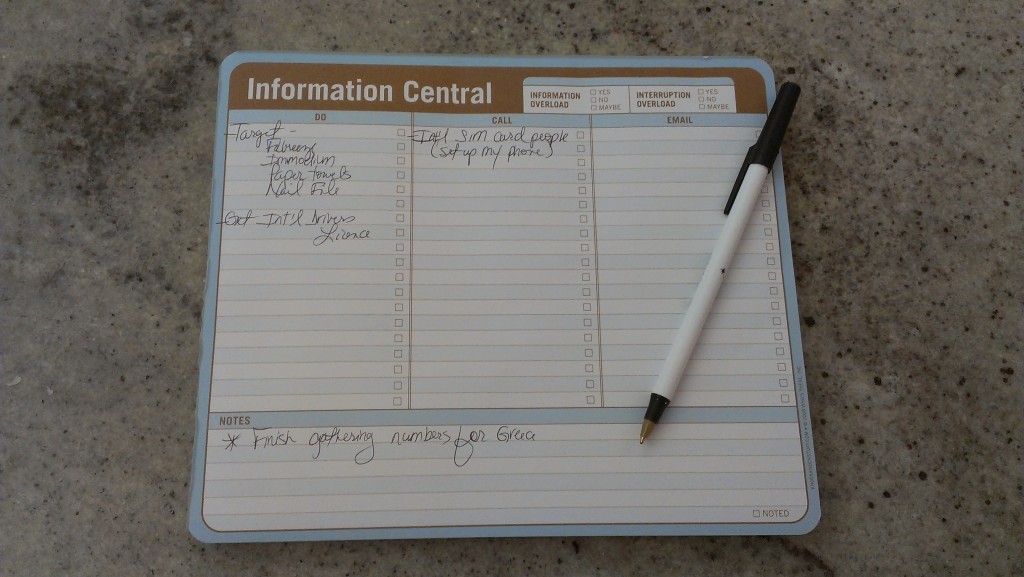 Information Central
INFORMATION OVERLOAD
YES
NO
MAYBE
INTERRUPTION OVERLOAD
YES
NO
MAYBE
DO
CALL
EMAIL
-Target-
Febreeze
Immodium
Paper Towels
Nail File
-Get Int'l Drivers
Licence
-Int'l Sim card people
(set up my phone)
NOTES
* Finish gathering numbers for Greece
NOTED